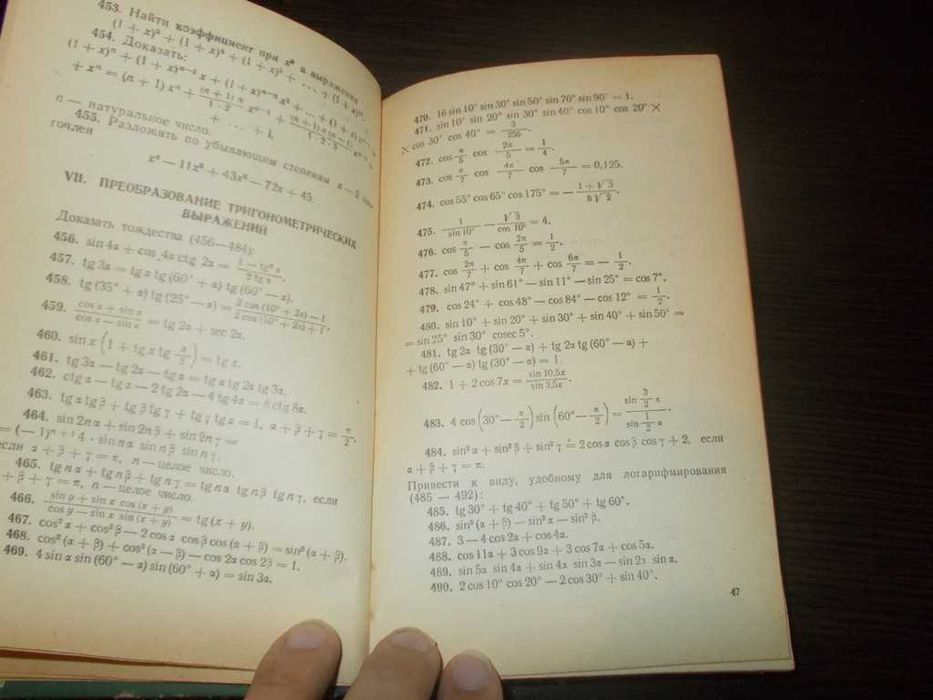 453. Найти коэффициент при x⁸ в выражении
(1 + x)² + (1 + x)³ + (1 + x)⁴ + ... + (1 + x)¹⁵.
454. Доказать:
(1 + x)ⁿ + (1 + x)ⁿ⁻¹ x + (1 + x)ⁿ⁻² x² + ... + (1 + x) xⁿ⁻¹ +
+ xⁿ = (n + 1) xⁿ + (n + 1) n / 1 · 2 xⁿ⁻¹ + (n + 1) n (n − 1) / 1 · 2 · 3 xⁿ⁻² +
+ ... + 1,
n — натуральное число.
455. Разложить по убывающим степеням x − 2
x⁴ − 11x³ + 43x² − 72x + 45.
VII. ПРЕОБРАЗОВАНИЕ ТРИГОНОМЕТРИЧЕСКИХ
ВЫРАЖЕНИЙ
Доказать тождества (456—484):
456. sin 4α + cos 4α ctg 2α = (1 − tg² α) / (2 tg α).
457. tg 3α = tg α tg (60° + α) tg (60° − α).
458. tg (35° + α) tg (25° − α) = (2 cos (10° + 2α) − 1) / (2 cos (10° + 2α) + 1).
459. (cos α + sin α) / (cos α − sin α) = tg 2α + sec 2α.
460. sin x (1 + tg x tg x/2) = tg x.
461. tg 3α − tg 2α − tg α = tg α tg 2α tg 3α.
462. ctg α − tg α − 2 tg 2α − 4 tg 4α = 8 ctg 8α.
463. tg α tg β + tg β tg γ + tg γ tg α = 1, α + β + γ = π/2.
464. sin 2nα + sin 2nβ + sin 2nγ =
= (− 1)ⁿ⁺¹ 4 · sin nα sin nβ sin nγ,
если α + β + γ = π, n — целое число.
465. tg nα + tg nβ + tg nγ = tg nα tg nβ tg nγ, если
α + β + γ = π, n — целое число.
466. (sin y + sin x cos (x + y)) / (cos y − sin x sin (x + y)) = tg (x + y).
467. cos² α + cos² β − 2 cos α cos β cos (α + β) = sin² (α + β).
468. cos² (α + β) + cos² (α − β) − cos 2α cos 2β = 1.
469. 4 sin α sin (60° − α) sin (60° + α) = sin 3α.
470. 16 sin 10° sin 30° sin 50° sin 70° sin 90° = 1.
471. sin 10° sin 20° sin 30° sin 40° cos 10° cos 20° ×
× cos 30° cos 40° = 3/256.
472. cos π/5 cos 2π/5 = 1/4.
473. cos π/7 cos 4π/7 cos 5π/7 = 0,125.
474. cos 55° cos 65° cos 175° = − (1 + √3) / (8 √2).
475. 1 / sin 10° − √3 / cos 10° = 4.
476. cos π/5 − cos 2π/5 = 1/2.
477. cos 2π/7 + cos 4π/7 + cos 6π/7 = − 1/2.
478. sin 47° + sin 61° − sin 11° − sin 25° = cos 7°.
479. cos 24° + cos 48° − cos 84° − cos 12° = 1/2.
480. sin 10° + sin 20° + sin 30° + sin 40° + sin 50° =
= sin 25° sin 30° cosec 5°.
481. tg 2α tg (30° − α) + tg 2α tg (60° − α) +
+ tg (60° − α) tg (30° − α) = 1.
482. 1 + 2 cos 7x = sin 10,5x / sin 3,5x.
483. 4 cos (30° − α/2) sin (60° − α/2) = sin 3/2 α / sin 1/2 α.
484. sin² α + sin² β + sin² γ = 2 cos α cos β cos γ + 2, если
α + β + γ = π.
Привести к виду, удобному для логарифмирования
(485 — 492):
485. tg 30° + tg 40° + tg 50° + tg 60°.
486. sin² (α + β) − sin² α − sin² β.
487. 3 − 4 cos 2α + cos 4α.
488. cos 11α + 3 cos 9α + 3 cos 7α + cos 5α.
489. sin 5α sin 4α + sin 4α sin 3α − sin 2α sin α.
490. 2 cos 10° cos 20° − 2 cos 30° + sin 40°.
47